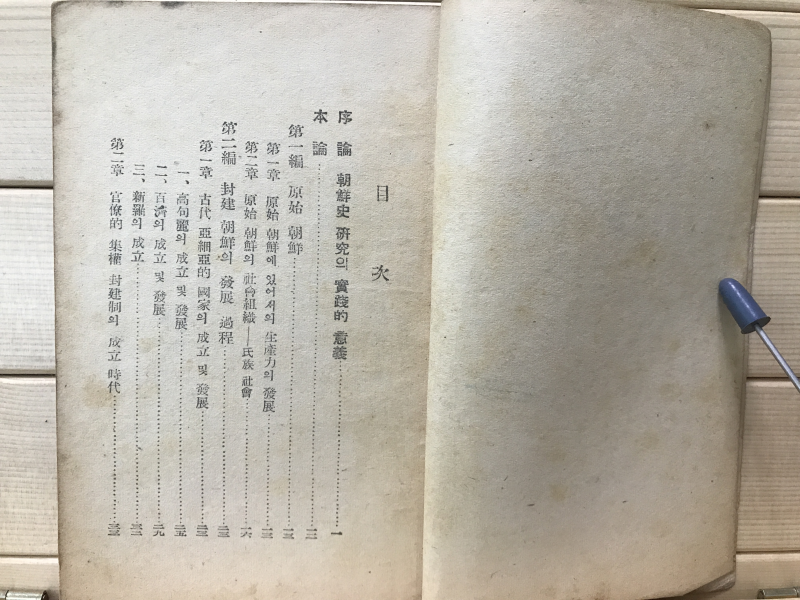 目 次
序 論 朝鮮史 硏究의 實踐的 意義 一
本 論 一三
第一編 原始 朝鮮 一三
第一章 原始 朝鮮에 있어서의 生產力의 發展 一三
第二章 原始 朝鮮의 社會組織——氏族 社會 一六
第二編 封建 朝鮮의 發展 過程 二三
第一章 古代 亞細亞的 國家의 成立 및 發展 二三
一、高句麗의 成立 및 發展 二五
二、百濟의 成立 및 發展 二九
三、新羅의 成立
第二章 官僚的 集權 封建制의 成立 時代